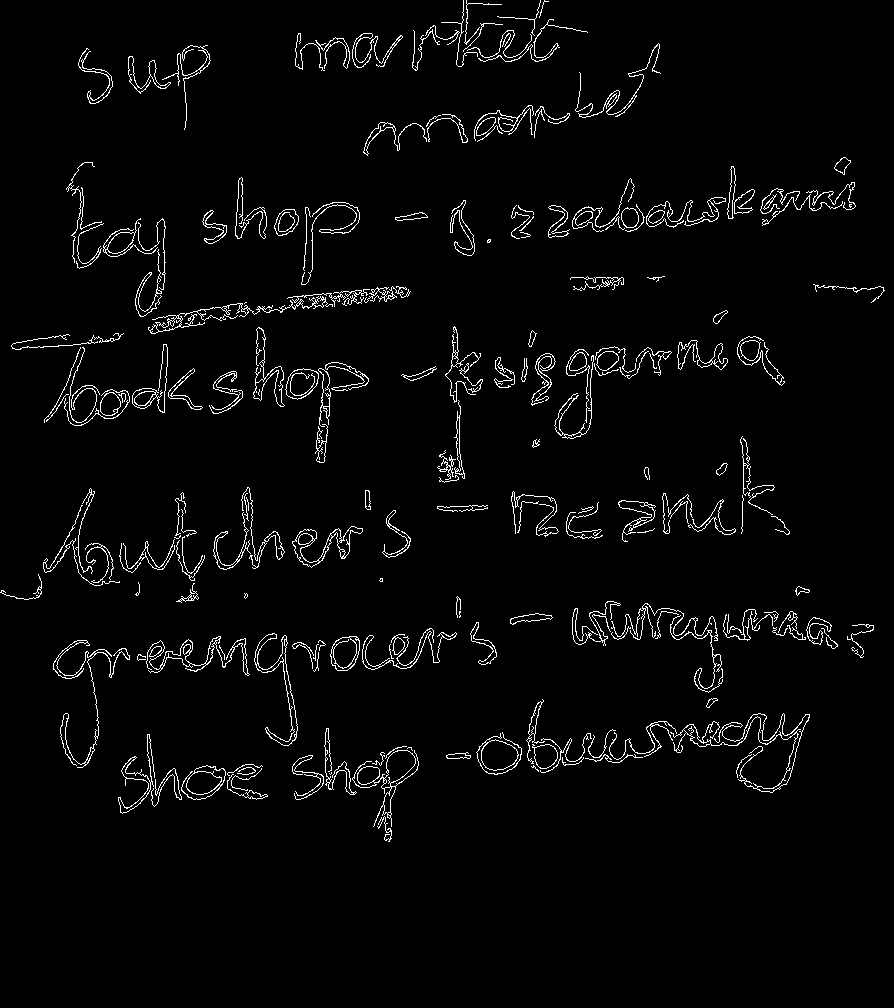 sup market
market
toy shop - s. z zabawkami
bookshop - księgarnia
butcher's - rzeźnik
greengrocer's - warzywnia
shoe shop - obuwniczy